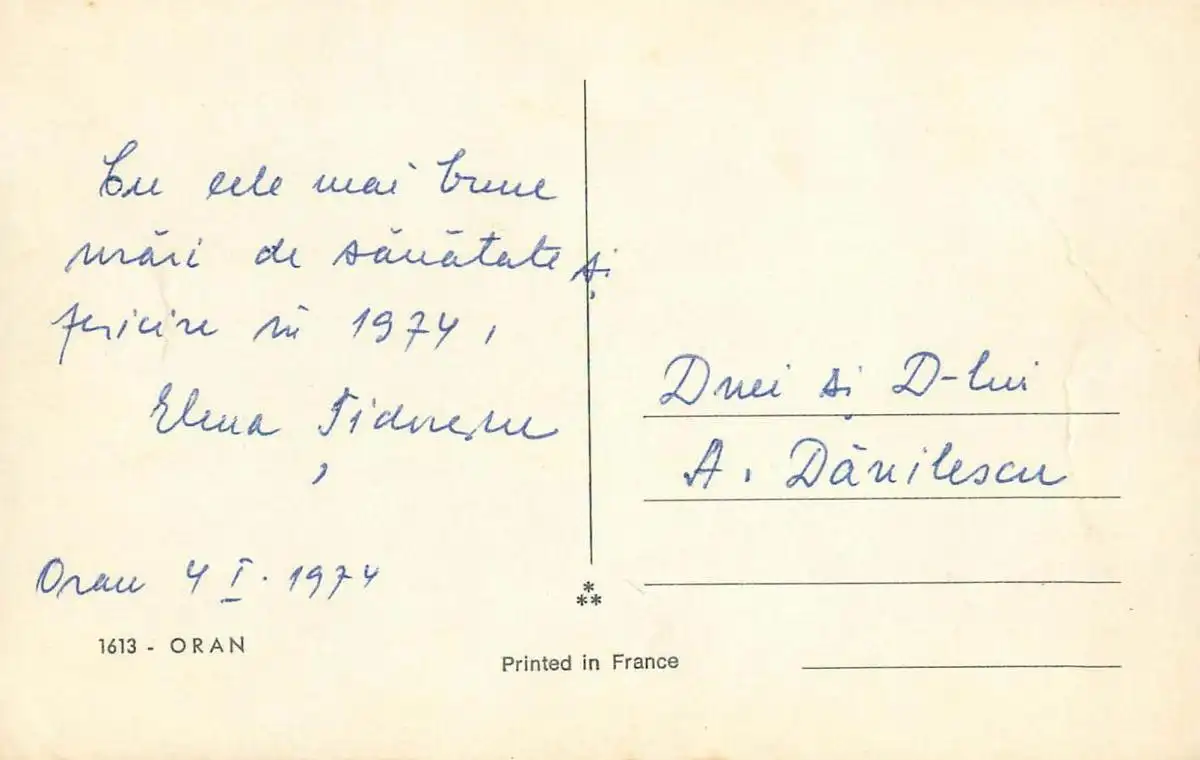 Cu cele mai bune
urări de sănătate și
fericire în 1974,
Elena
Oran 4 I. 1974
1613 - ORAN
Printed in France
Dnei și D-lui
A. Dănilescu